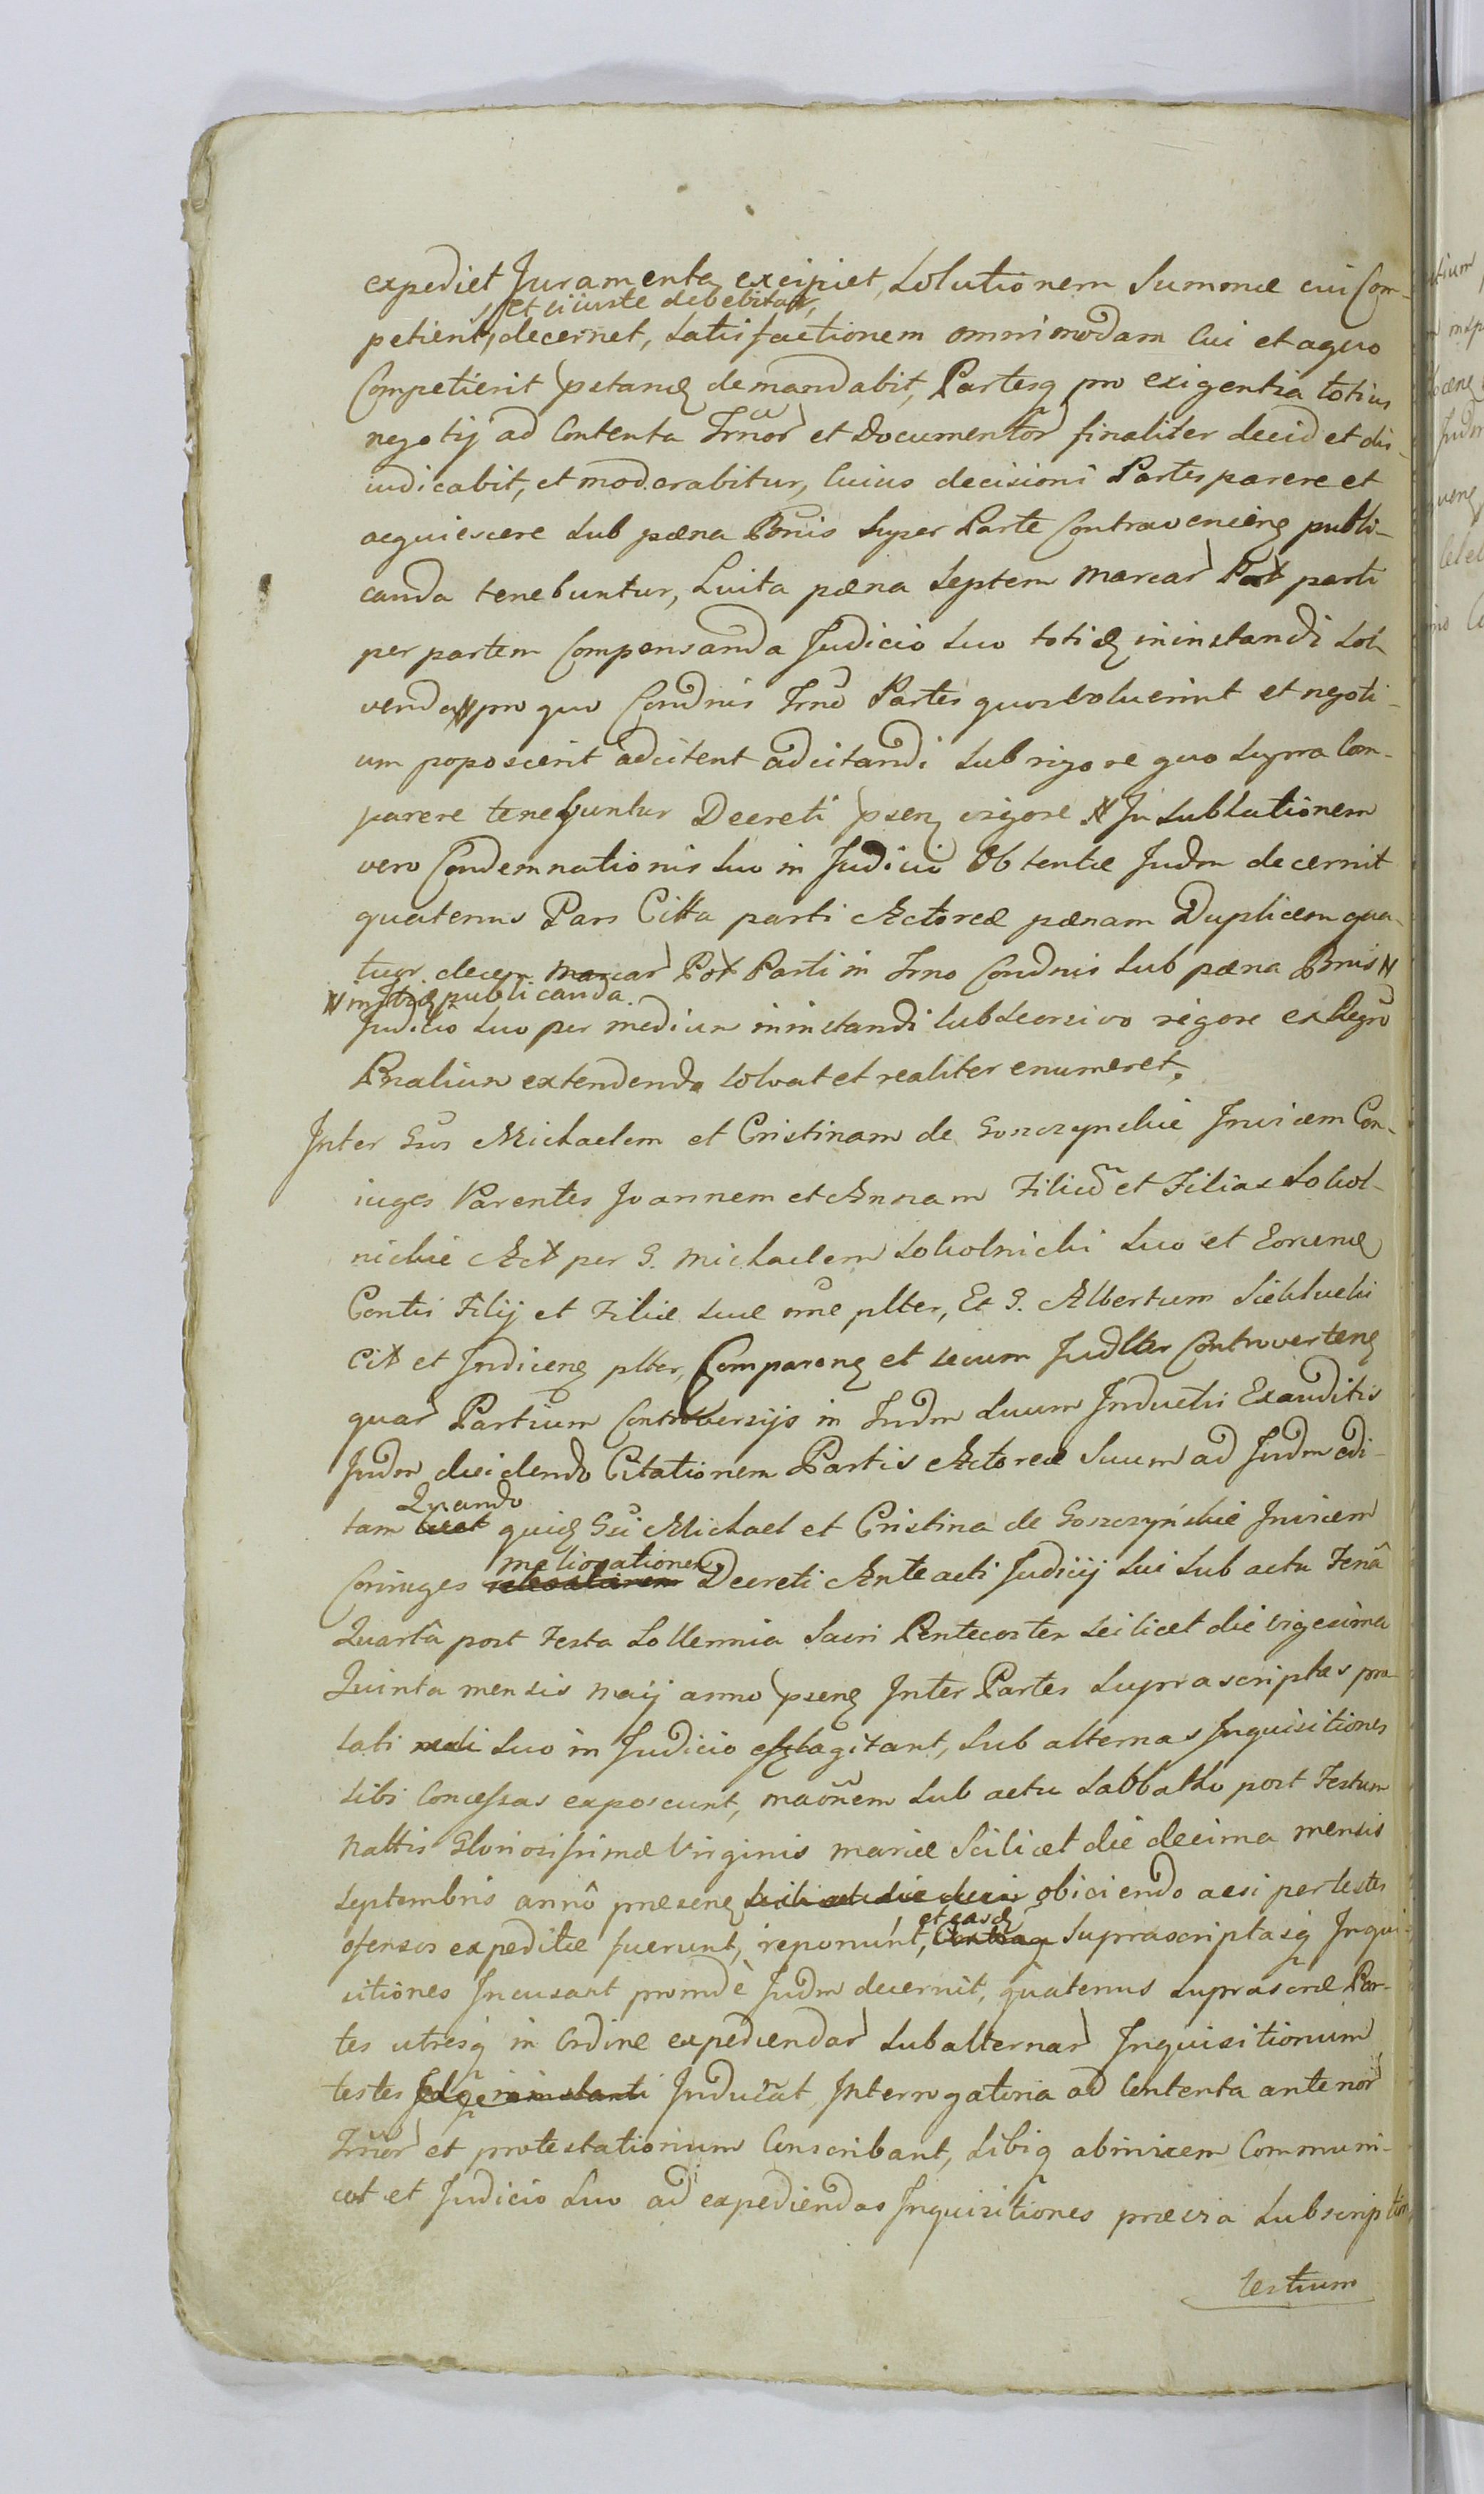 expediet Juramenta excipiet, Solutionem Summæ cui Com-
et si iuste debebitur,
petient, decernet, satisfactionem omnimodam Cui et a quo
Competierit pstandę demandabit, Partesq pro exigentia totius
negotij ad Contenta Trnor et Documentor finaliter decid et dis-
iudicabit, et moderabitur, Cuius decisioni Partes parere et
acquiescere sub pæna Bonis super Parte Contravenienę publi-
canda tenebuntur, Luita pæna Septem Marcar Pol parti
per partem Compensanda Judicio suo totidę ininstandi sol-
venda pro quo Condnis Trno Partes quos voluerint et negoti-
um poposcerit adcitent adcitandi sub rigore quo supra Com-
parere tenebuntur Decreti psenę vigore In sublationem
vero Condemnationis suo in Judicio Obtentæ Judm decernit
quatenus Pars Citta parti Actoreæ pænam Duplicem qua-
tuor decem Marcar Pol Parti in Trno Condnis sub pæna Bnis
publicanda.
Judicio suo per medium ininstandi sub seorsivo rigore ex Regro
Pnalium extendendo solvat et realiter enumeret.
Inter Gsos Michaelem et Cristinam de Goszczynskie Invicem Con-
iuges Parentes Joannem et Annam Filium et Filias Sokol-
nickie Act per G. Michaelem Sokolnicki suo et Eorum
Contis Filij et Filiæ suæ nne plter, Et G. Albertum Siekłucki
Cit et Indicenę plter, Comparenę et secum Judlter Controvertenę
quar Partium Controversijs in Judm suum Inductis Exauditis
Judm decidendo Citationem Partis Actoreæ Suum ad Judm edi-
Quando
tam quidę Gsi Michael et Cristina de Goszczyńskie Invicem
meliorationem
Coniuges Decreti Anteacti Judicij sui sub actu Feria
Quarta post Festa Sollennia Sacri Pentecostes scilicet die vigesima
Quinta mensis Maij anno psenę Inter Partes suprascriptas pro-
lati suo in Judicio efflagitant, sub alternas Inquisitiones
sibi Concessas exposcunt, sub actu Sabbatho post Festum
Nattis Gloriosissimæ Virginis Mariæ Scilicet die decima mensis
Septembris anno præsenę obiciendo acsi per testes
et easdę
ofensos expeditæ fuerunt, reponunt, Suprascriptasq Inqui-
sitiones Incusant proindè Judm decernit, quatenus suprascræ Par-
tes utræsq in Ordine expediendar subalternar Inquisitionum
testes Inducat Interrogatoria ad Contenta antenor
Trnor et protestationum Conscribant, sibiq abinvicem Communi-
cet et Judicio suo ad expediendas Inquisitiones prævia subscription
testium